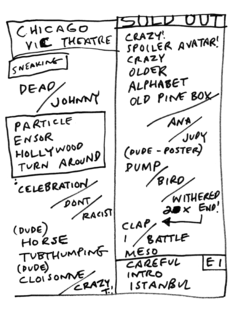 CHICAGO
VIC THEATRE
SNEAKING
DEAD/
JOHNNY
PARTICLE
ENSOR
HOLLYWOOD
TURN AROUND
CELEBRATION/
DONT/
RACIST
(DUDE)
HORSE
TUBTHUMPING
(DUDE)
CLOISONNE/
CRAZY
SOLD OUT
CRAZY!
SPOILER AVATAR!
CRAZY
OLDER
ALPHABET
OLD PINE BOX/
ANA/
JUDY
(DUDE-POSTER)
DUMP/
BIRD/
WITHERED
2X END!
CLAP
I/BATTLE
MESO
CAREFUL
INTRO
ISTANBUL
E1